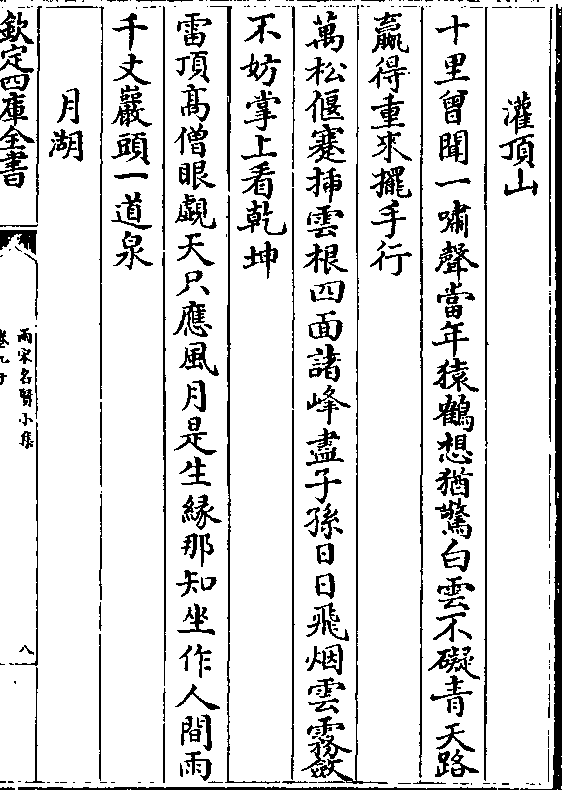 灌頂山
十里曾聞一嘯聲當年猿鶴想猶驚白雲不礙青天路
贏得重來擺手行
萬松偃蹇揷雲根四面諸峰盡子孫日日飛烟雲霧斂
不妨掌上看乾坤
雷頂髙僧眼覷天只應風月是生縁那知坐作人間雨
千丈巖頭一道泉
月湖
欽定四庫全書
兩宋名賢小集
八